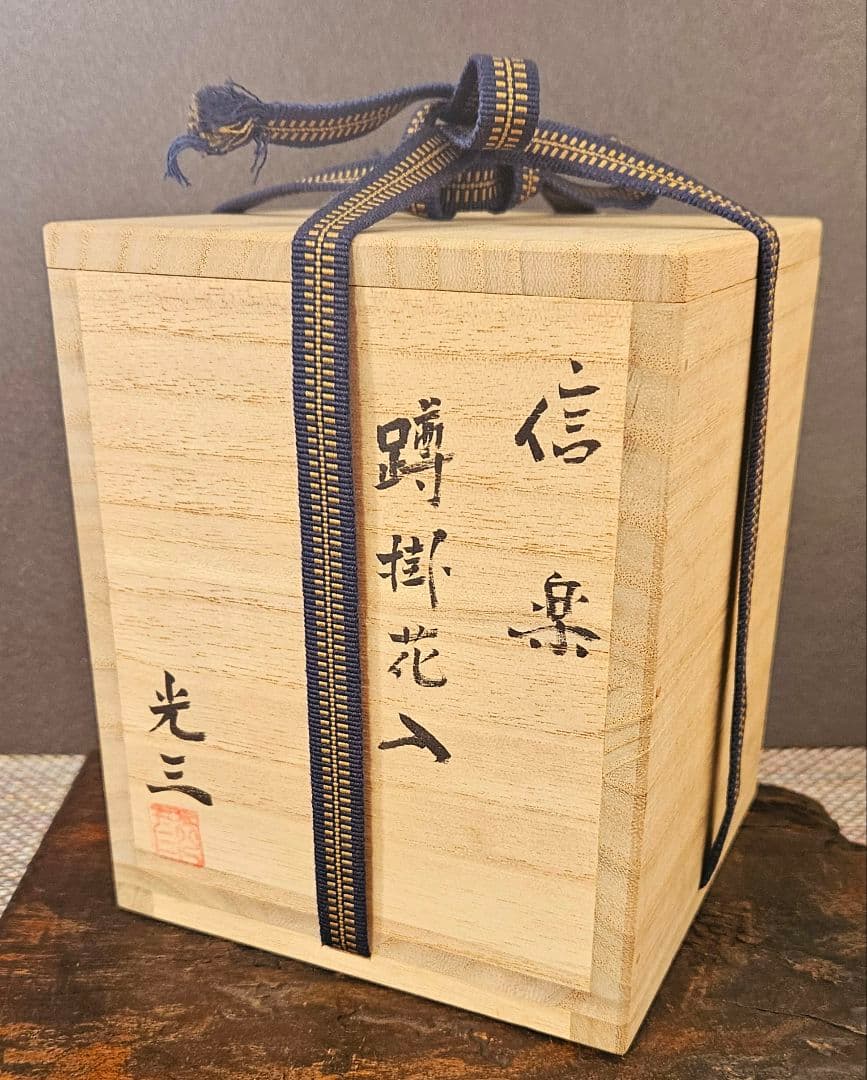 信楽
蹲掛花入
光三